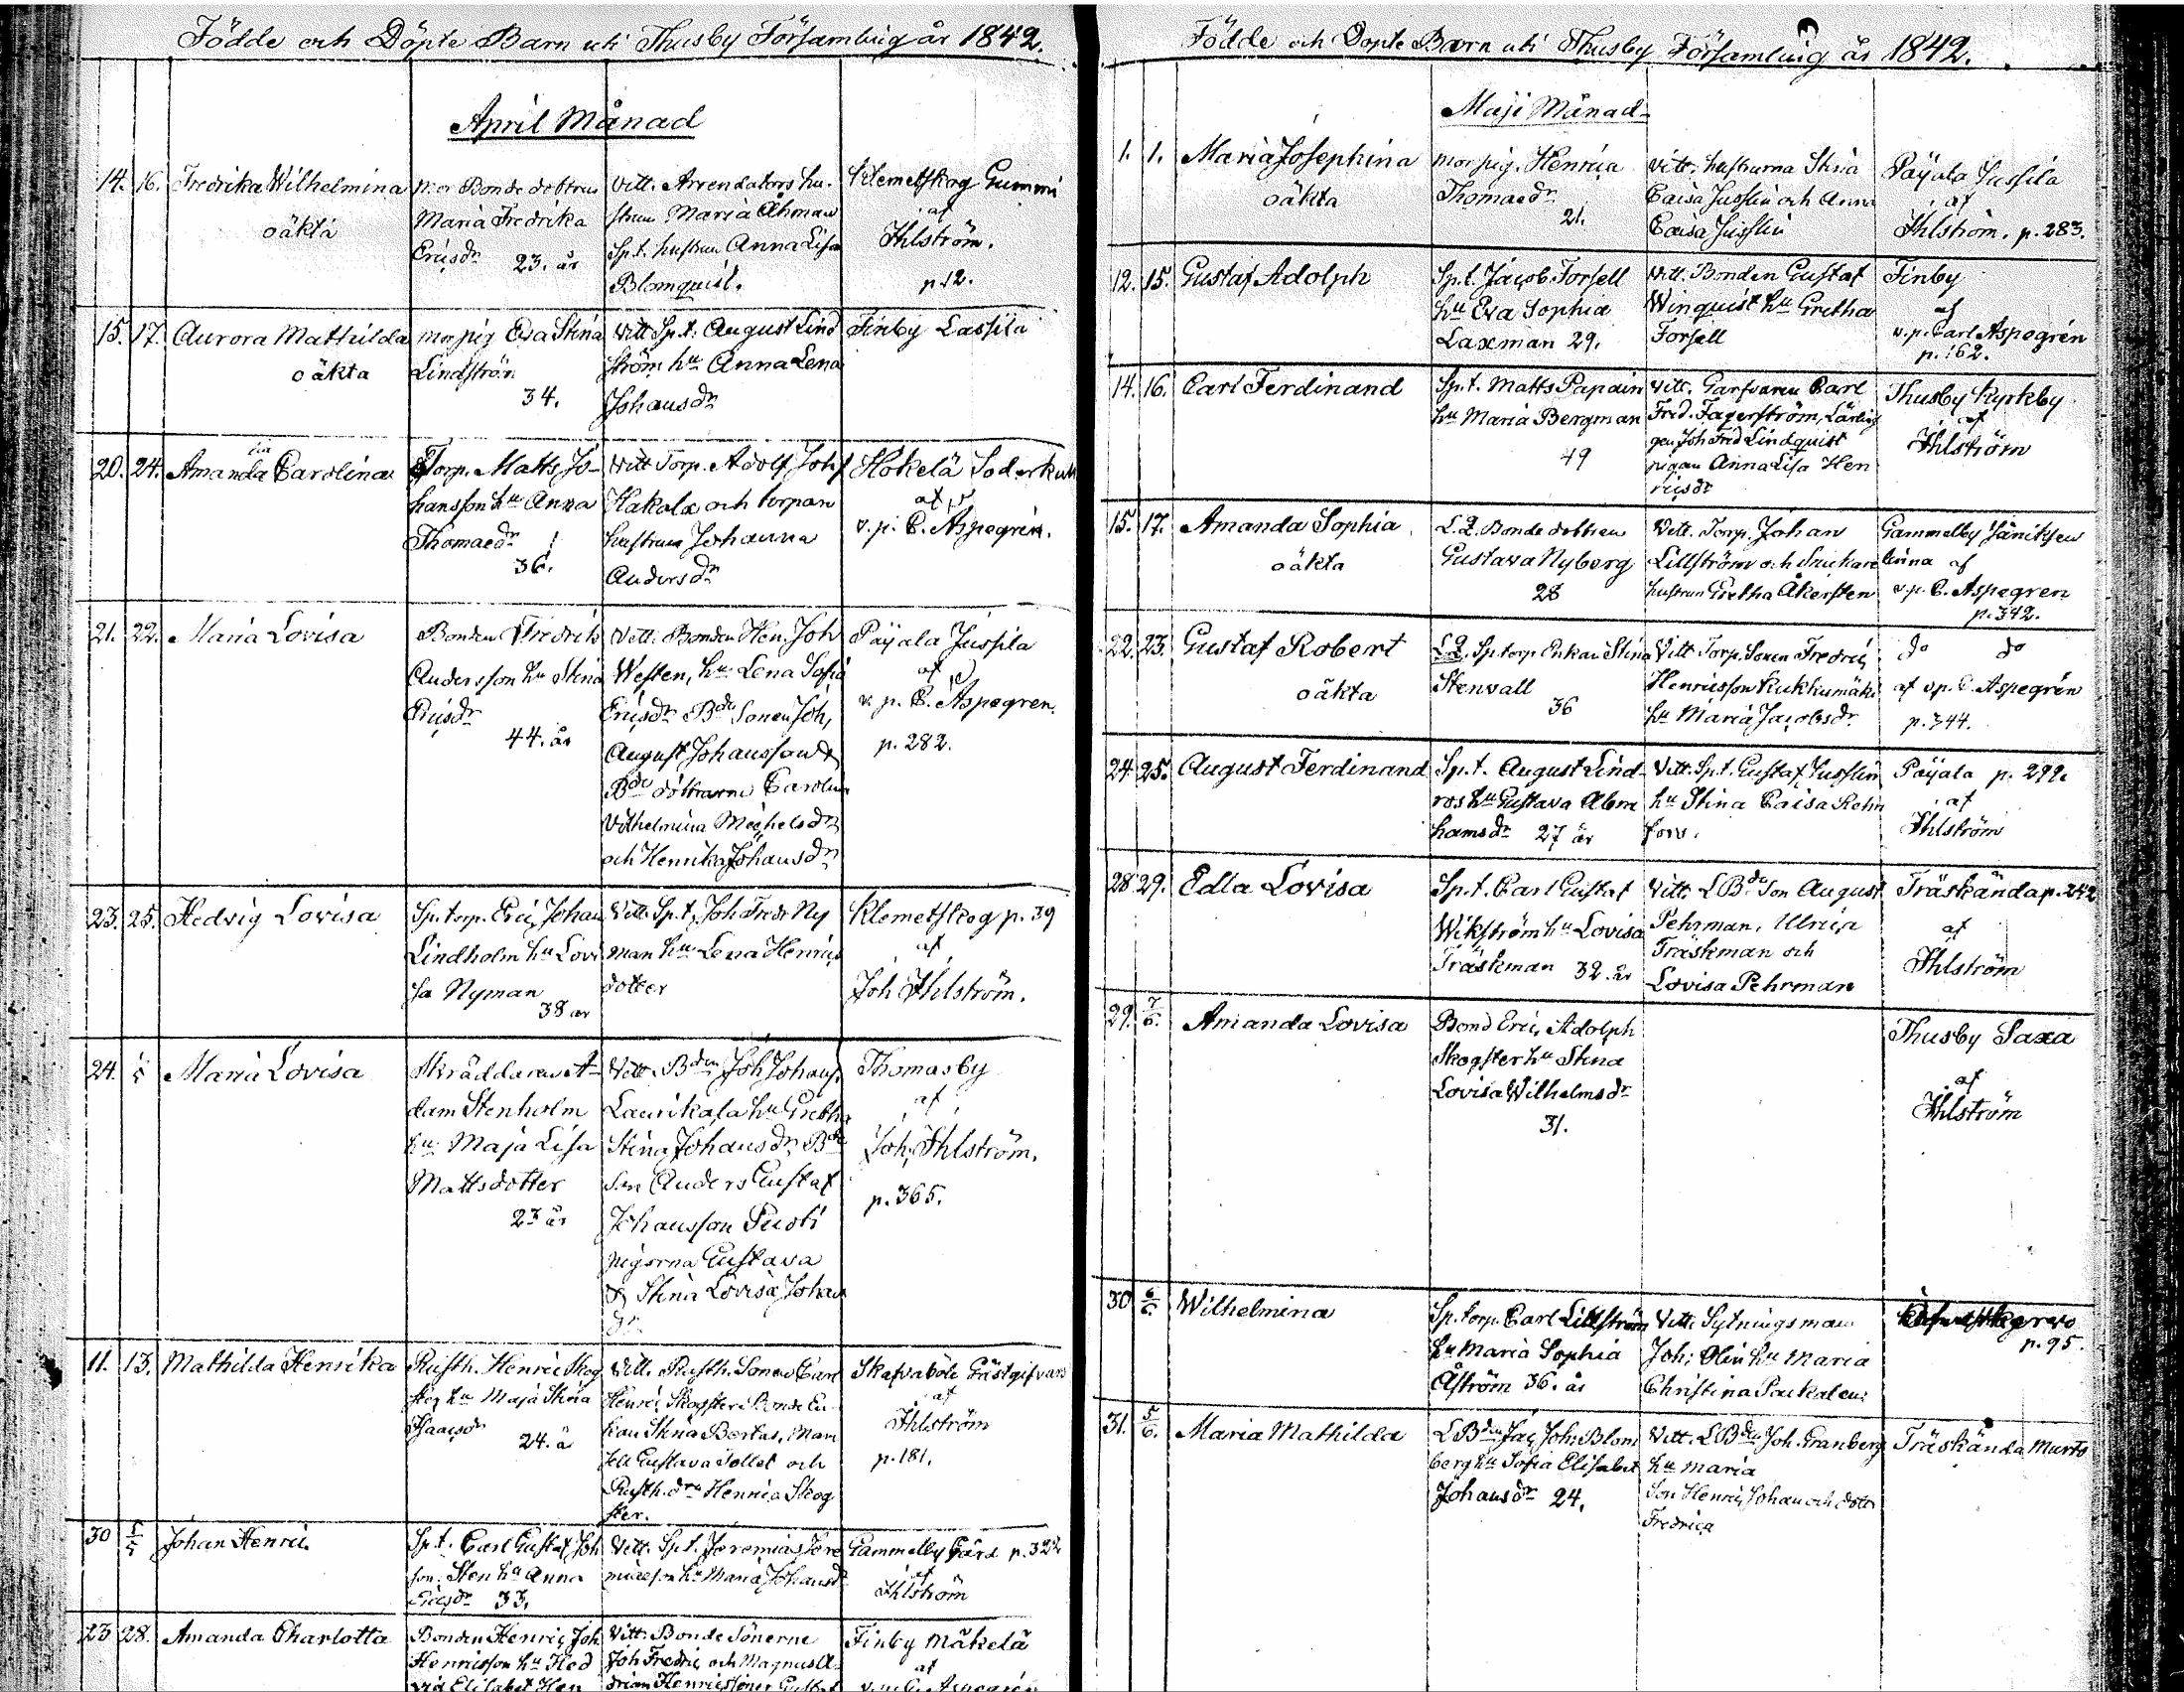 Födde och Döpte Barn uti Thusby Församling år 1842.
April Månad
14. 16. Fredrika Wilhelmina
oäkta
mor Bonde dottren
Maria Fredrika
Ericsdr 23. år
Vitt. Arrendators hu-
strun Maria Åhman
Sp.t. hustrun Anna Lisa
Blomquist.
Klemetskog Gummi
af
Ihlström.
p.12.
15. 17. Aurora Mathilda
oäkta
mor pig Eva Stina
Lindström
34.
Vitt Sp.t. August Lind
ström hu Anna Lena
Johansdr
Finby Lassila
20. 24. Amanda Carolina
Torp. Matts Jo-
hansson hu Anna
Thomaedr
36.
Vitt Torp. Adolf Joh
Hakala och torpan
hustrun Johanna
Andersdr
Hokelä Soderkull
af
v.p. C. Aspegrén.
21. 22. Maria Lovisa
Bonden Fredrik
Andersson hu Stina
Ericsdr
44. år
Vitt. Bonden Hen. Joh
Westen, hu Lena Sofia
Ericsdr Bde Sonen Joh,
August Johansson &
Bde döttrarne Carolin
Vilhelmina Michelsdr
och Henrika Johansdr
Päyala Jussila
af
v. p. C. Aspegren.
p. 282.
23. 25. Hedvig Lovisa
Sp. torp. Eric Johan
Lindholm hu Lovi
sa Nyman
38 år
Vitt. Sp.t. Joh Fredr Ny
man hu Lena Henrics
dotter
Klemetskog p. 39
af
Joh Ihlström.
24. Maria Lovisa
Skräddaren A-
dam Stenholm
hu Maja Lisa
Mattsdotter
23 år
Vitt. Bden Joh Johans.
Laurikala hu Gretha
Stina Johansdr Bde
son Anders Gustaf
Johansson
pigorna Gustava
& Stina Lovisa Johans
dr
Thomasby
af
Joh, Ihlström.
p. 365.
11. 13. Mathilda Henrika
Rusth. Henric Skog
ster hu Maja Stina
Isaacsdr
24. å
Vitt. Rusth. Sonen Carl
Henric Skogster Bonde En-
kan Stina Bertas, Mam
sell Gustava Söllet och
Rusth. dr Henrica Skog
ster.
Skafvaböle Gästgifvars
af
Ihlström
p. 181.
30 Johan Henric
Sp.t. Carl Gustaf Joh
son Sten hu Anna
Ericsdr 33.
Vitt. Sp.t. Jeremias Jere
miaeson hu Maria Johansdr
Gammelby Gård p. 322
af
Ihlström
23 28. Amanda Charlotta
Bonden Henric Joh
Henricsson hu Hed
vid Elisabet Hen
Vitt. Bonde Sönerne
Joh Fredric och Magnus A-
drian Henricssöner Gustaf
Finby Mäkelä
af
v.p. C. Aspegrén
Födde och Döpte Barn uti Thusby Församling år 1842.
Maji Månad
1. 1. Maria Josephina
oäkta
mor pig. Henrica
Thomaedr
21.
Vitt. hustrurna Stina
Caisa Jusslin och Anna
Caisa Jusslin
Päyala Jussila
af
Ihlström. p. 283.
12. 15. Gustaf Adolph
Sp.t. Jacob Forsell
hu Eva Sophia
Laxman 29.
Vitt. Bonden Gustaf
Winquist hu Gretha
Forsell
Finby
af
v.p. Carl Aspegrén
p. 162.
14. 16. Carl Ferdinand
Sp.t. Matts Papain
hu Maria Bergman
49
Vitt. Garfvaren Carl
Fred. Fagerström, Lärlin
gen Joh Fred Lindquist
pigan Anna Lisa Hen
ricsdr
Thusby Kyrkby
af
Ihlström
15. 17. Amanda Sophia
oäkta
L.L. Bonde dottren
Gustava Nyberg
28
Vitt. Torp. Johan
Lillström och Snickare
hustrun Gretha Åkersten
Gammelby Jäniksen
linna af
v.p. C. Aspegren
p. 342.
22. 23. Gustaf Robert
oäkta
L.L. Sp torp Enkan Stina
Stenvall
36
Vitt Torp. Sonen Fredric
Henricsson Kukkumäki
hu Maria Jacobsdr
do do
af v.p. C. Aspegrén
p. 344.
24 25. August Ferdinand
Sp.t. August Lind-
ros hu Gustava Abra
hamsdr 27 år
Vitt. Sp.t. Gustaf Jusslin
hu Stina Caisa Rehn
fors.
Päyala p. 292.
af
Ihlström
28 29. Edla Lovisa
Sp.t. Carl Gustaf
Wikström hu Lovisa
Träskman 32. år
Vitt. L Bde Son August
Pehrman, Ulrica
Träskman och
Lovisa Pehrman
Träskända p. 242
af
Ihlström
29. 7/6. Amanda Lovisa
Bond Eric Adolph
Skogster hu Stina
Lovisa Wilhelmsdr
31.
Thusby Saxa
af
Ihlström
30 Wilhelmina
Sp. torp. Carl Lillström
hu Maria Sophia
Åström 36. år
Vitt. Sytningsman
Joh; Olin hu Maria
Christina
p. 95.
31. 5/6. Maria Mathilda
L Bden Jac Joh; Blom
berg hu Sofia Elisabet
Johansdr 24.
Vitt. L Bden Joh. Granberg
hu Maria
Son Henric Johan och dotter
Fredrica
Träskända Murto